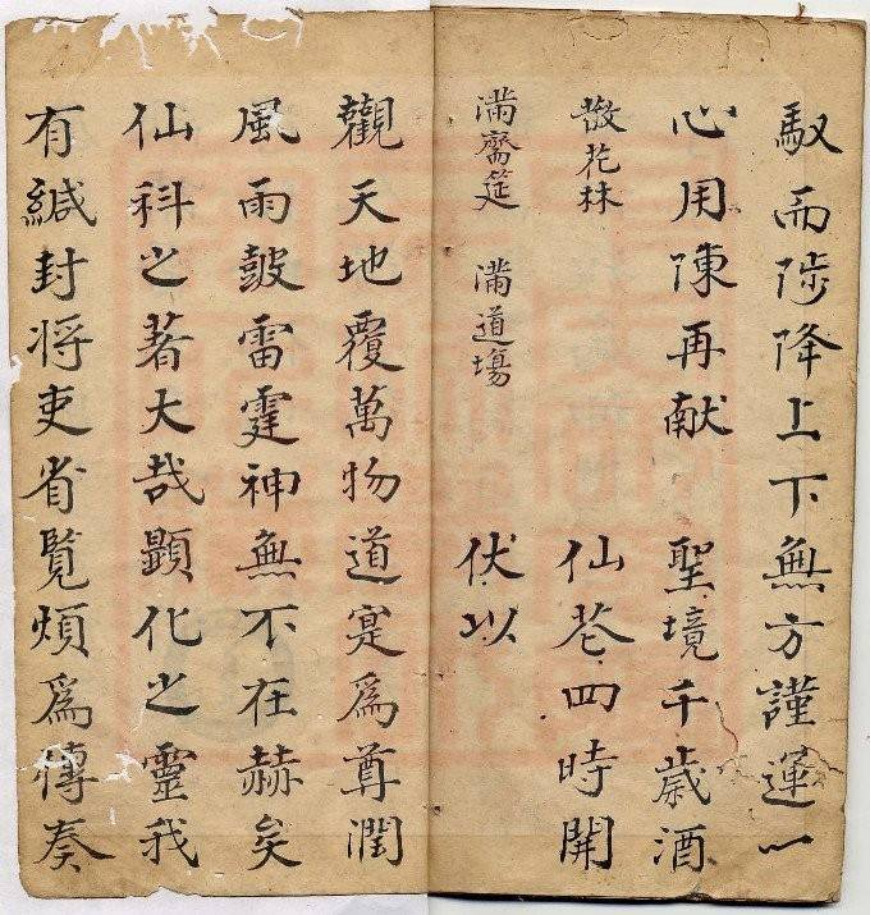 馭而陟降上下無方謹運一
心用陳再献 聖境千歳酒
散花林 仙苍四時開
满齋筵 满道場 伏以
觀天地覆萬物道寔為尊潤
風雨皷雷霆神無不在赫矣
仙科之著大哉顕化之靈我
有緘封将吏省覧煩為傳奏